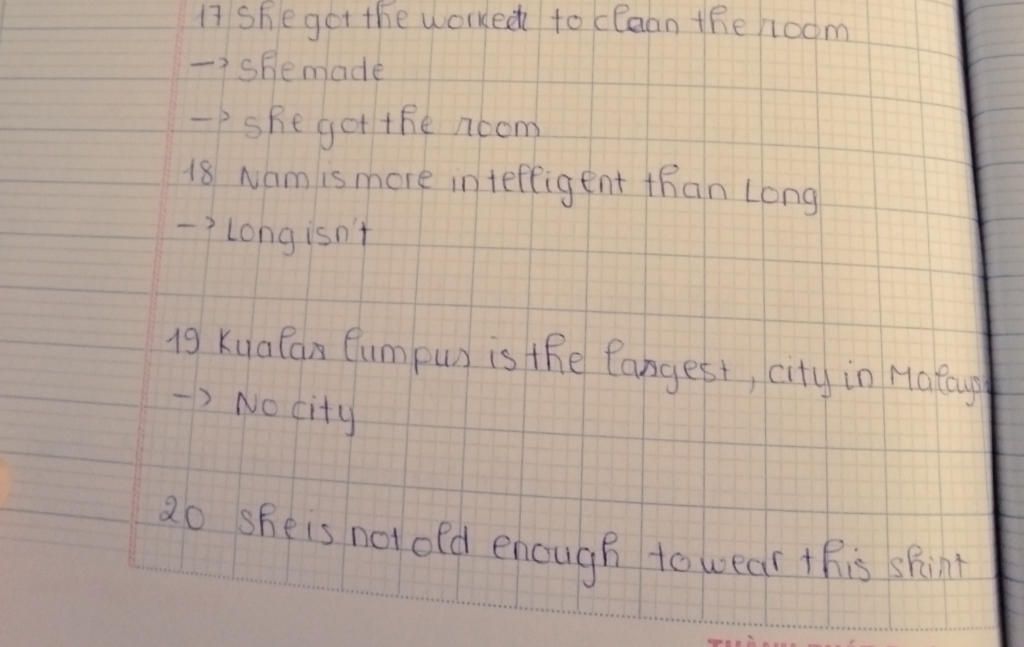 17 she got the worked to claan the room
-> she made
-> she got the room
18 Nam is more intelligent than Long
-> Long isn't
19 Kualar lumpur is the largest, city in Malays
-> No city
20 she is not old enough to wear this shirt